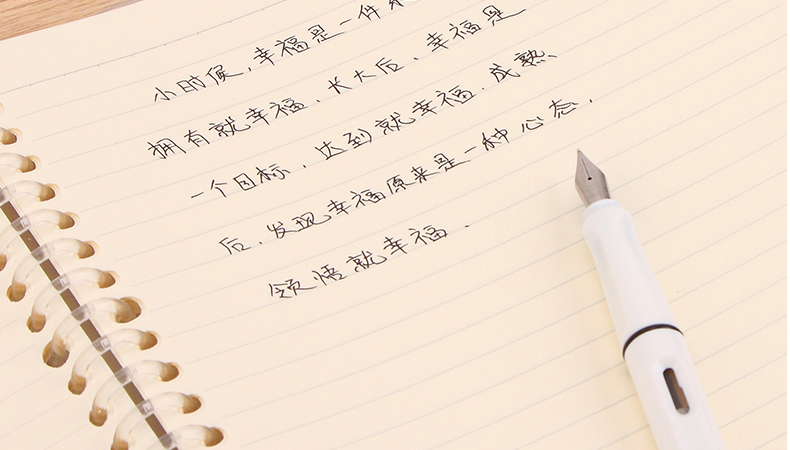 小时候,幸福是一件
拥有就幸福.长大后,幸福是
一个目标,达到就幸福.成熟
后,发现幸福原来是一种心态,
领悟就幸福.